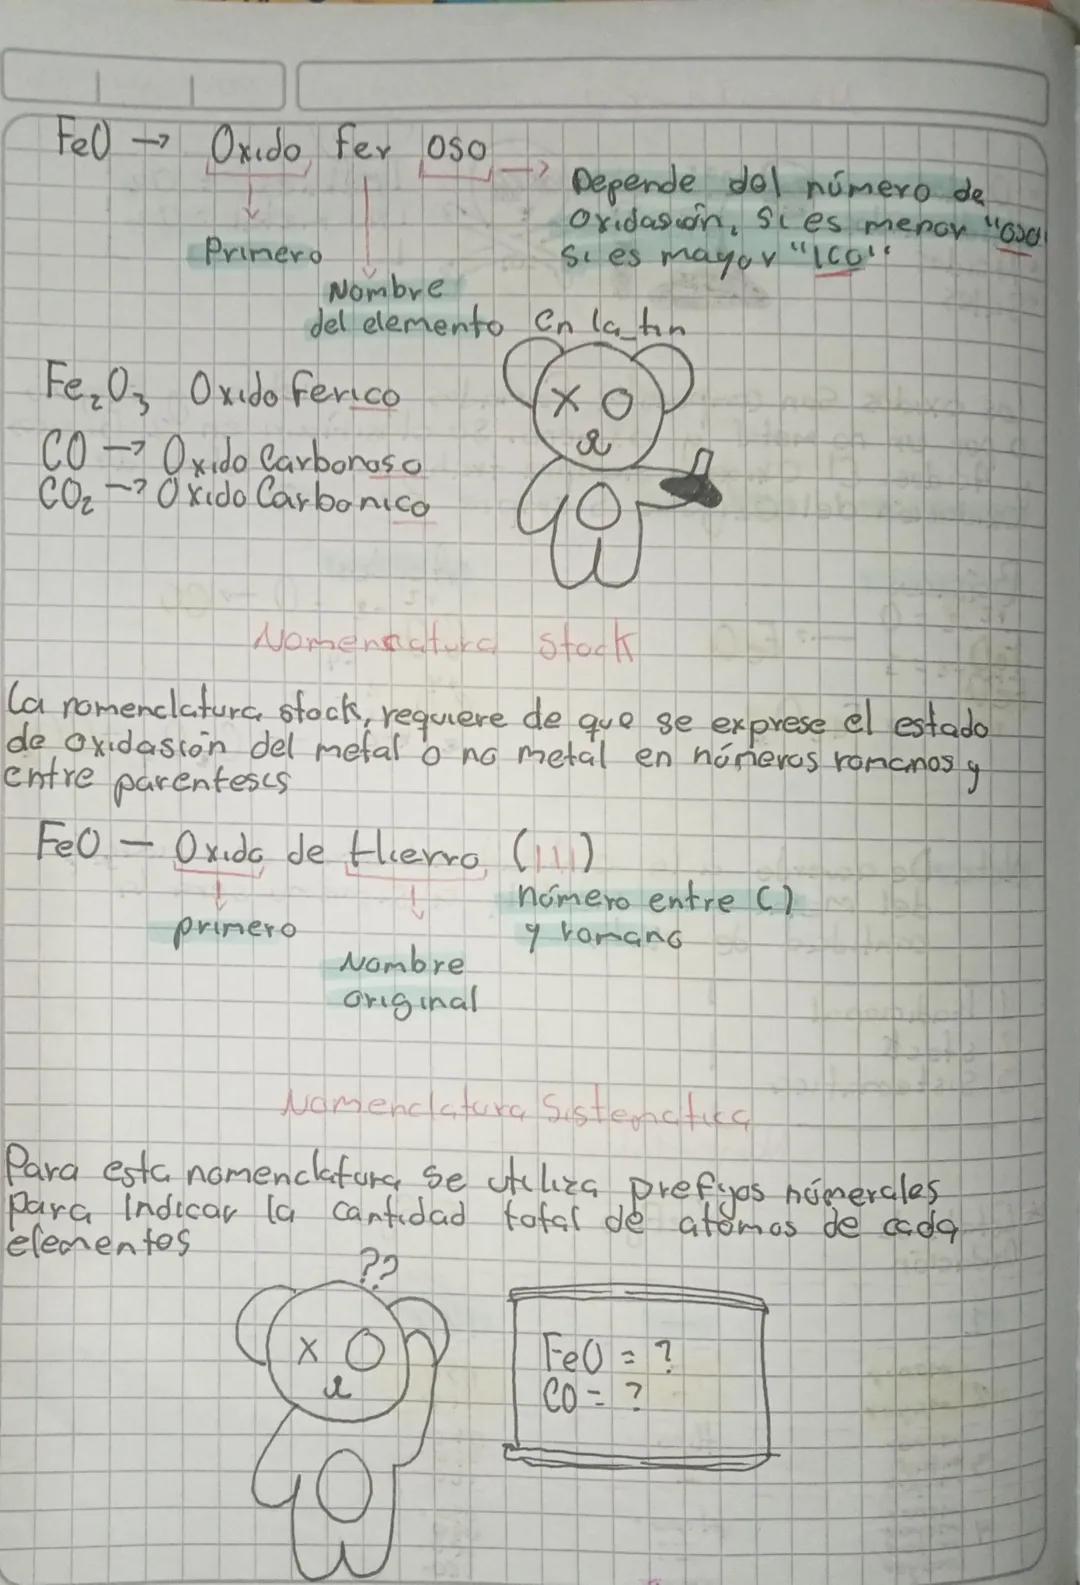 FeO → Oxido fer oso →
Depende del número de
oxidasión, si es menor "oso"
si es mayor "ico"
Primero
Nombre
del elemento en latin
Fe₂O₃ Oxido ferico
CO → Oxido Carbonoso
CO₂ → Oxido Carbonico
X O
Nomenclatura Stock
la nomenclatura stock, requiere de que se exprese el estado
de oxidasión del metal o no metal en números romanos y
entre parentesis
FeO – Oxido de Hierro (III)
número entre ( )
y romano
primero
Nombre
original
Nomenclatura Sistematica
Para esta nomenclatura se utiliza prefijos númerales
para indicar la cantidad total de atomos de cada
elementos
??
X O
FeO = ?
CO = ?